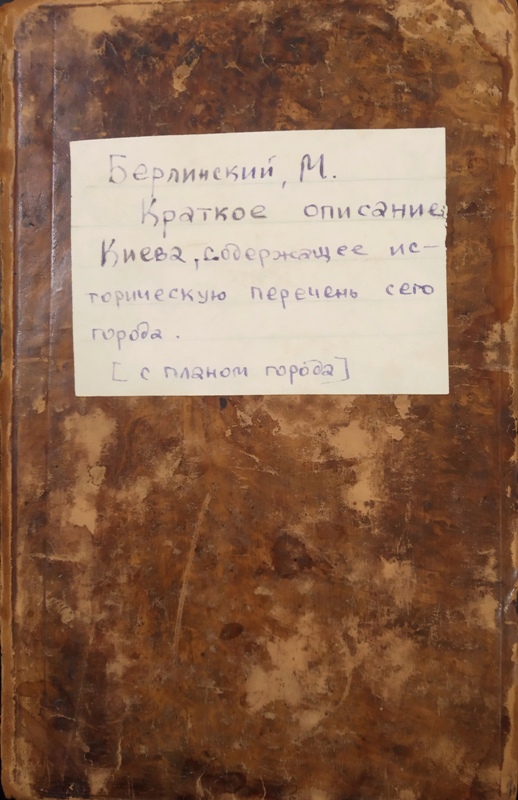 Берлинский, М.
Краткое описание
Киева, содержащее ис-
торическую перечень сего
города.
[ с планом города]